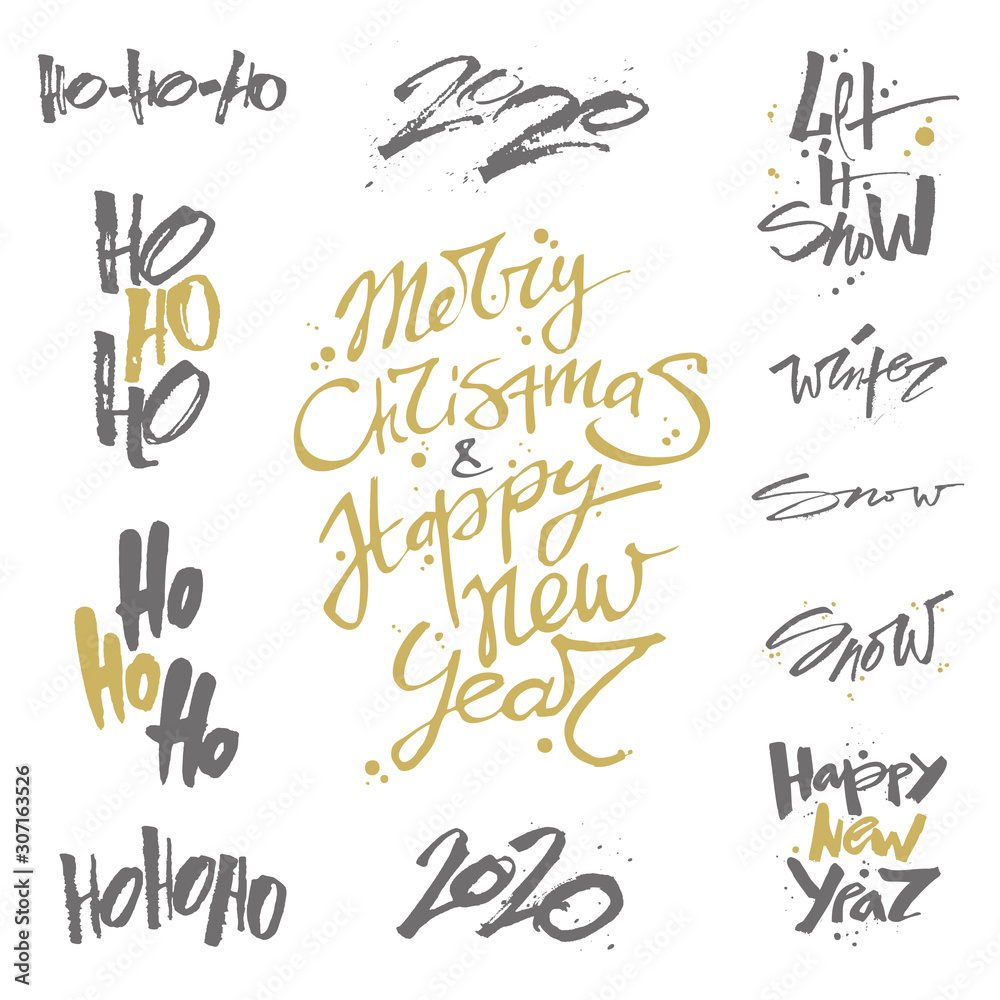 HO-HO-HO
HO
HO
HO
Ho
Ho
Ho
HOHOHO
2020
Merry
Christmas
&
Happy
New
Year
2020
Let
it
Snow
Winter
Snow
Snow
Happy
New
Year
Adobe Stock | #307163526